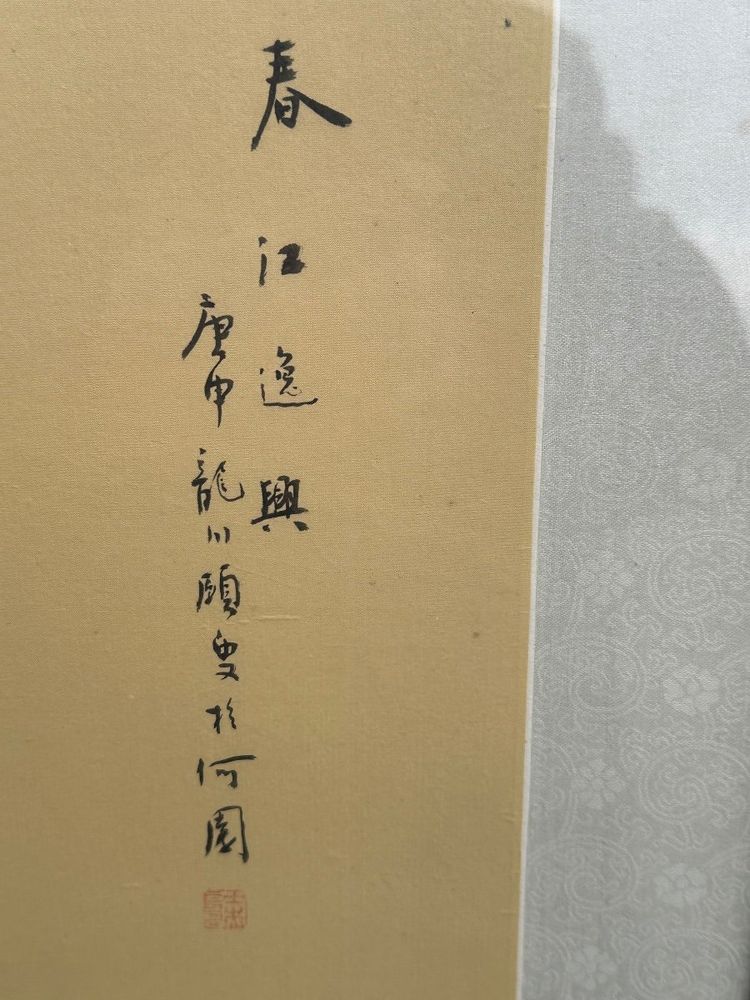 春江逸興
庚申龍川頤叟於何園